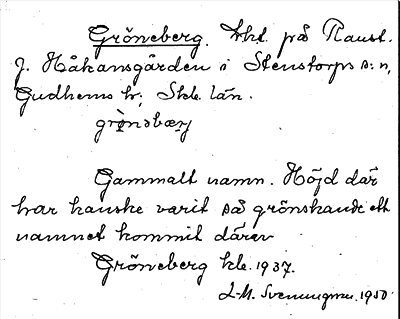 Gröneberg. kht. på Raust.
f. Håkansgården i Stenstorps s:n,
Gudhems hr; Skbl. län.
Gammalt namn. Höjd där
har kanske varit så grönskande att
namnet kommit därav
Gröneberg kbl. 1937.
L-M. Svenungsson. 1950.